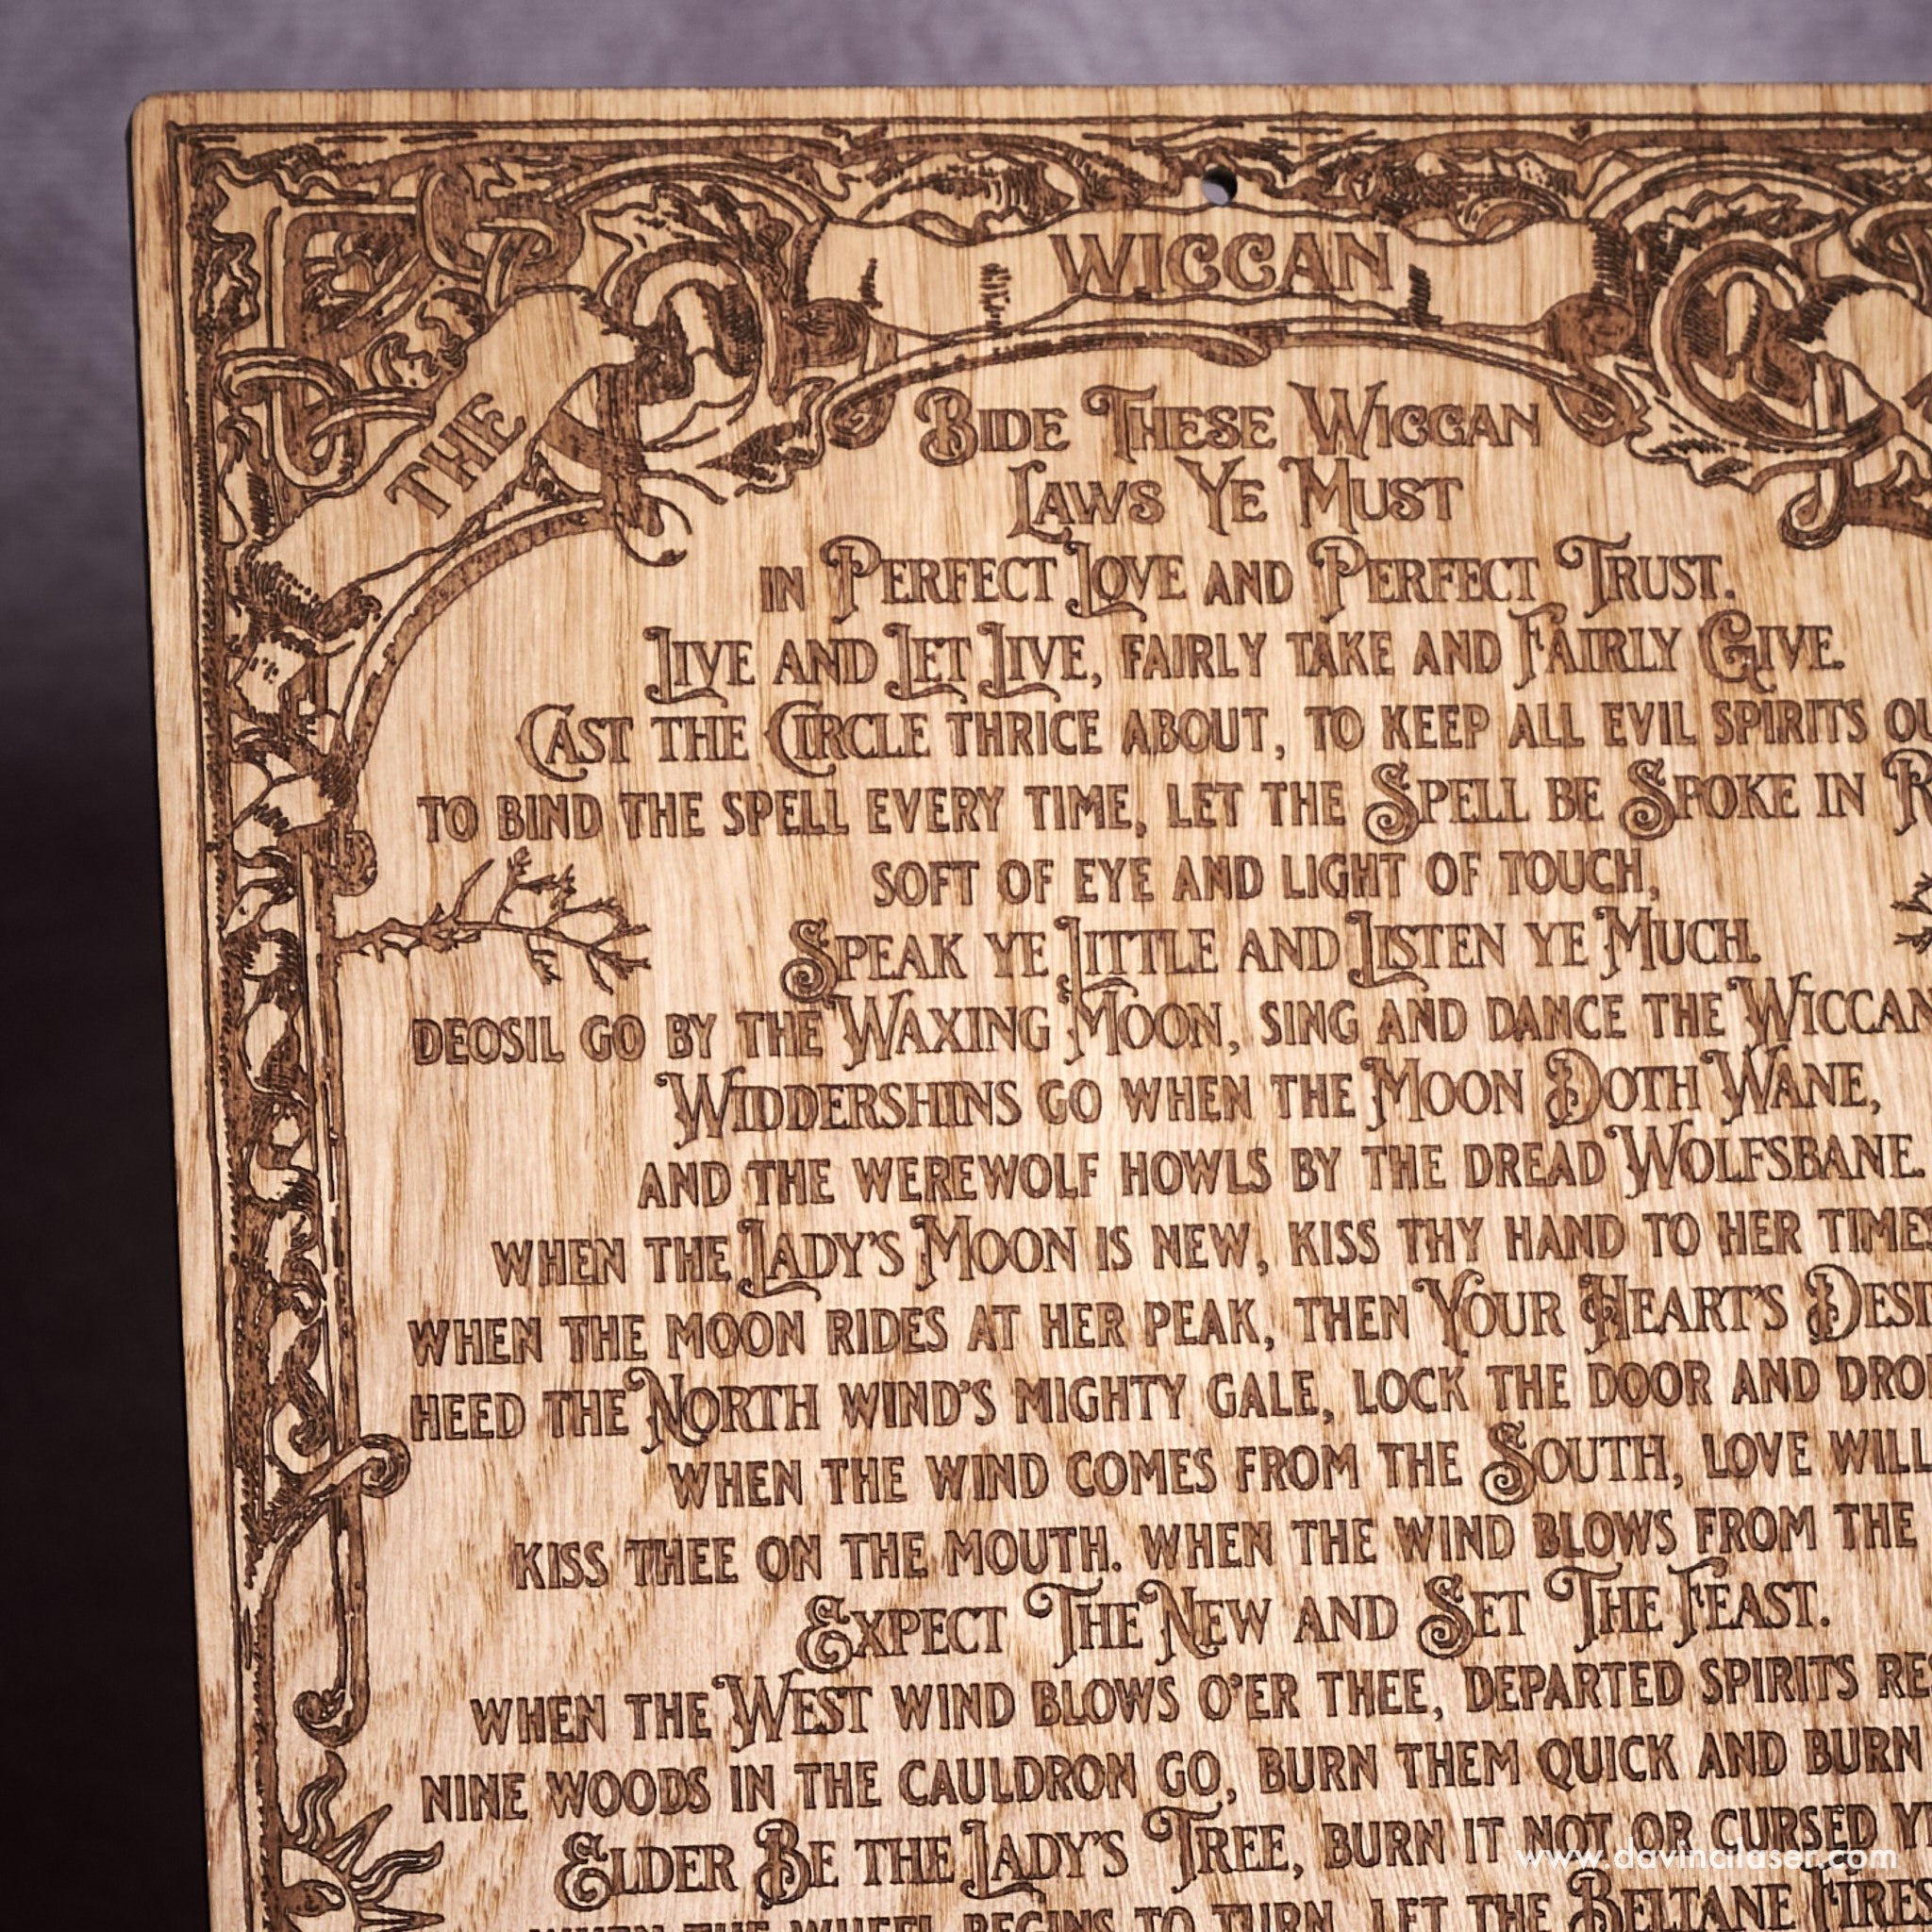 THE
WICCAN
BIDE THESE WICCAN
LAWS YE MUST
IN PERFECT LOVE AND PERFECT TRUST.
LIVE AND LET LIVE, FAIRLY TAKE AND FAIRLY GIVE.
CAST THE CIRCLE THRICE ABOUT, TO KEEP ALL EVIL SPIRITS
TO BIND THE SPELL EVERY TIME, LET THE SPELL BE SPOKE IN
SOFT OF EYE AND LIGHT OF TOUCH,
SPEAK YE LITTLE AND LISTEN YE MUCH.
DEOSIL GO BY THE WAXING MOON, SING AND DANCE THE WICCAN
WIDDERSHINS GO WHEN THE MOON DOTH WANE,
AND THE WEREWOLF HOWLS BY THE DREAD WOLFSBANE.
WHEN THE LADY'S MOON IS NEW, KISS THY HAND TO HER TIMES
WHEN THE MOON RIDES AT HER PEAK, THEN YOUR HEART'S
HEED THE NORTH WIND'S MIGHTY GALE, LOCK THE DOOR AND
WHEN THE WIND COMES FROM THE SOUTH, LOVE WILL
KISS THEE ON THE MOUTH. WHEN THE WIND BLOWS FROM THE
EXPECT THE NEW AND SET THE FEAST.
WHEN THE WEST WIND BLOWS O'ER THEE, DEPARTED SPIRITS
NINE WOODS IN THE CAULDRON GO, BURN THEM QUICK AND BURN
ELDER BE THE LADY'S TREE, BURN IT NOT OR CURSED
WHEN THE WHEEL BEGINS TO TURN, LET THE BELTANE FIRES
www.davincilaser.com